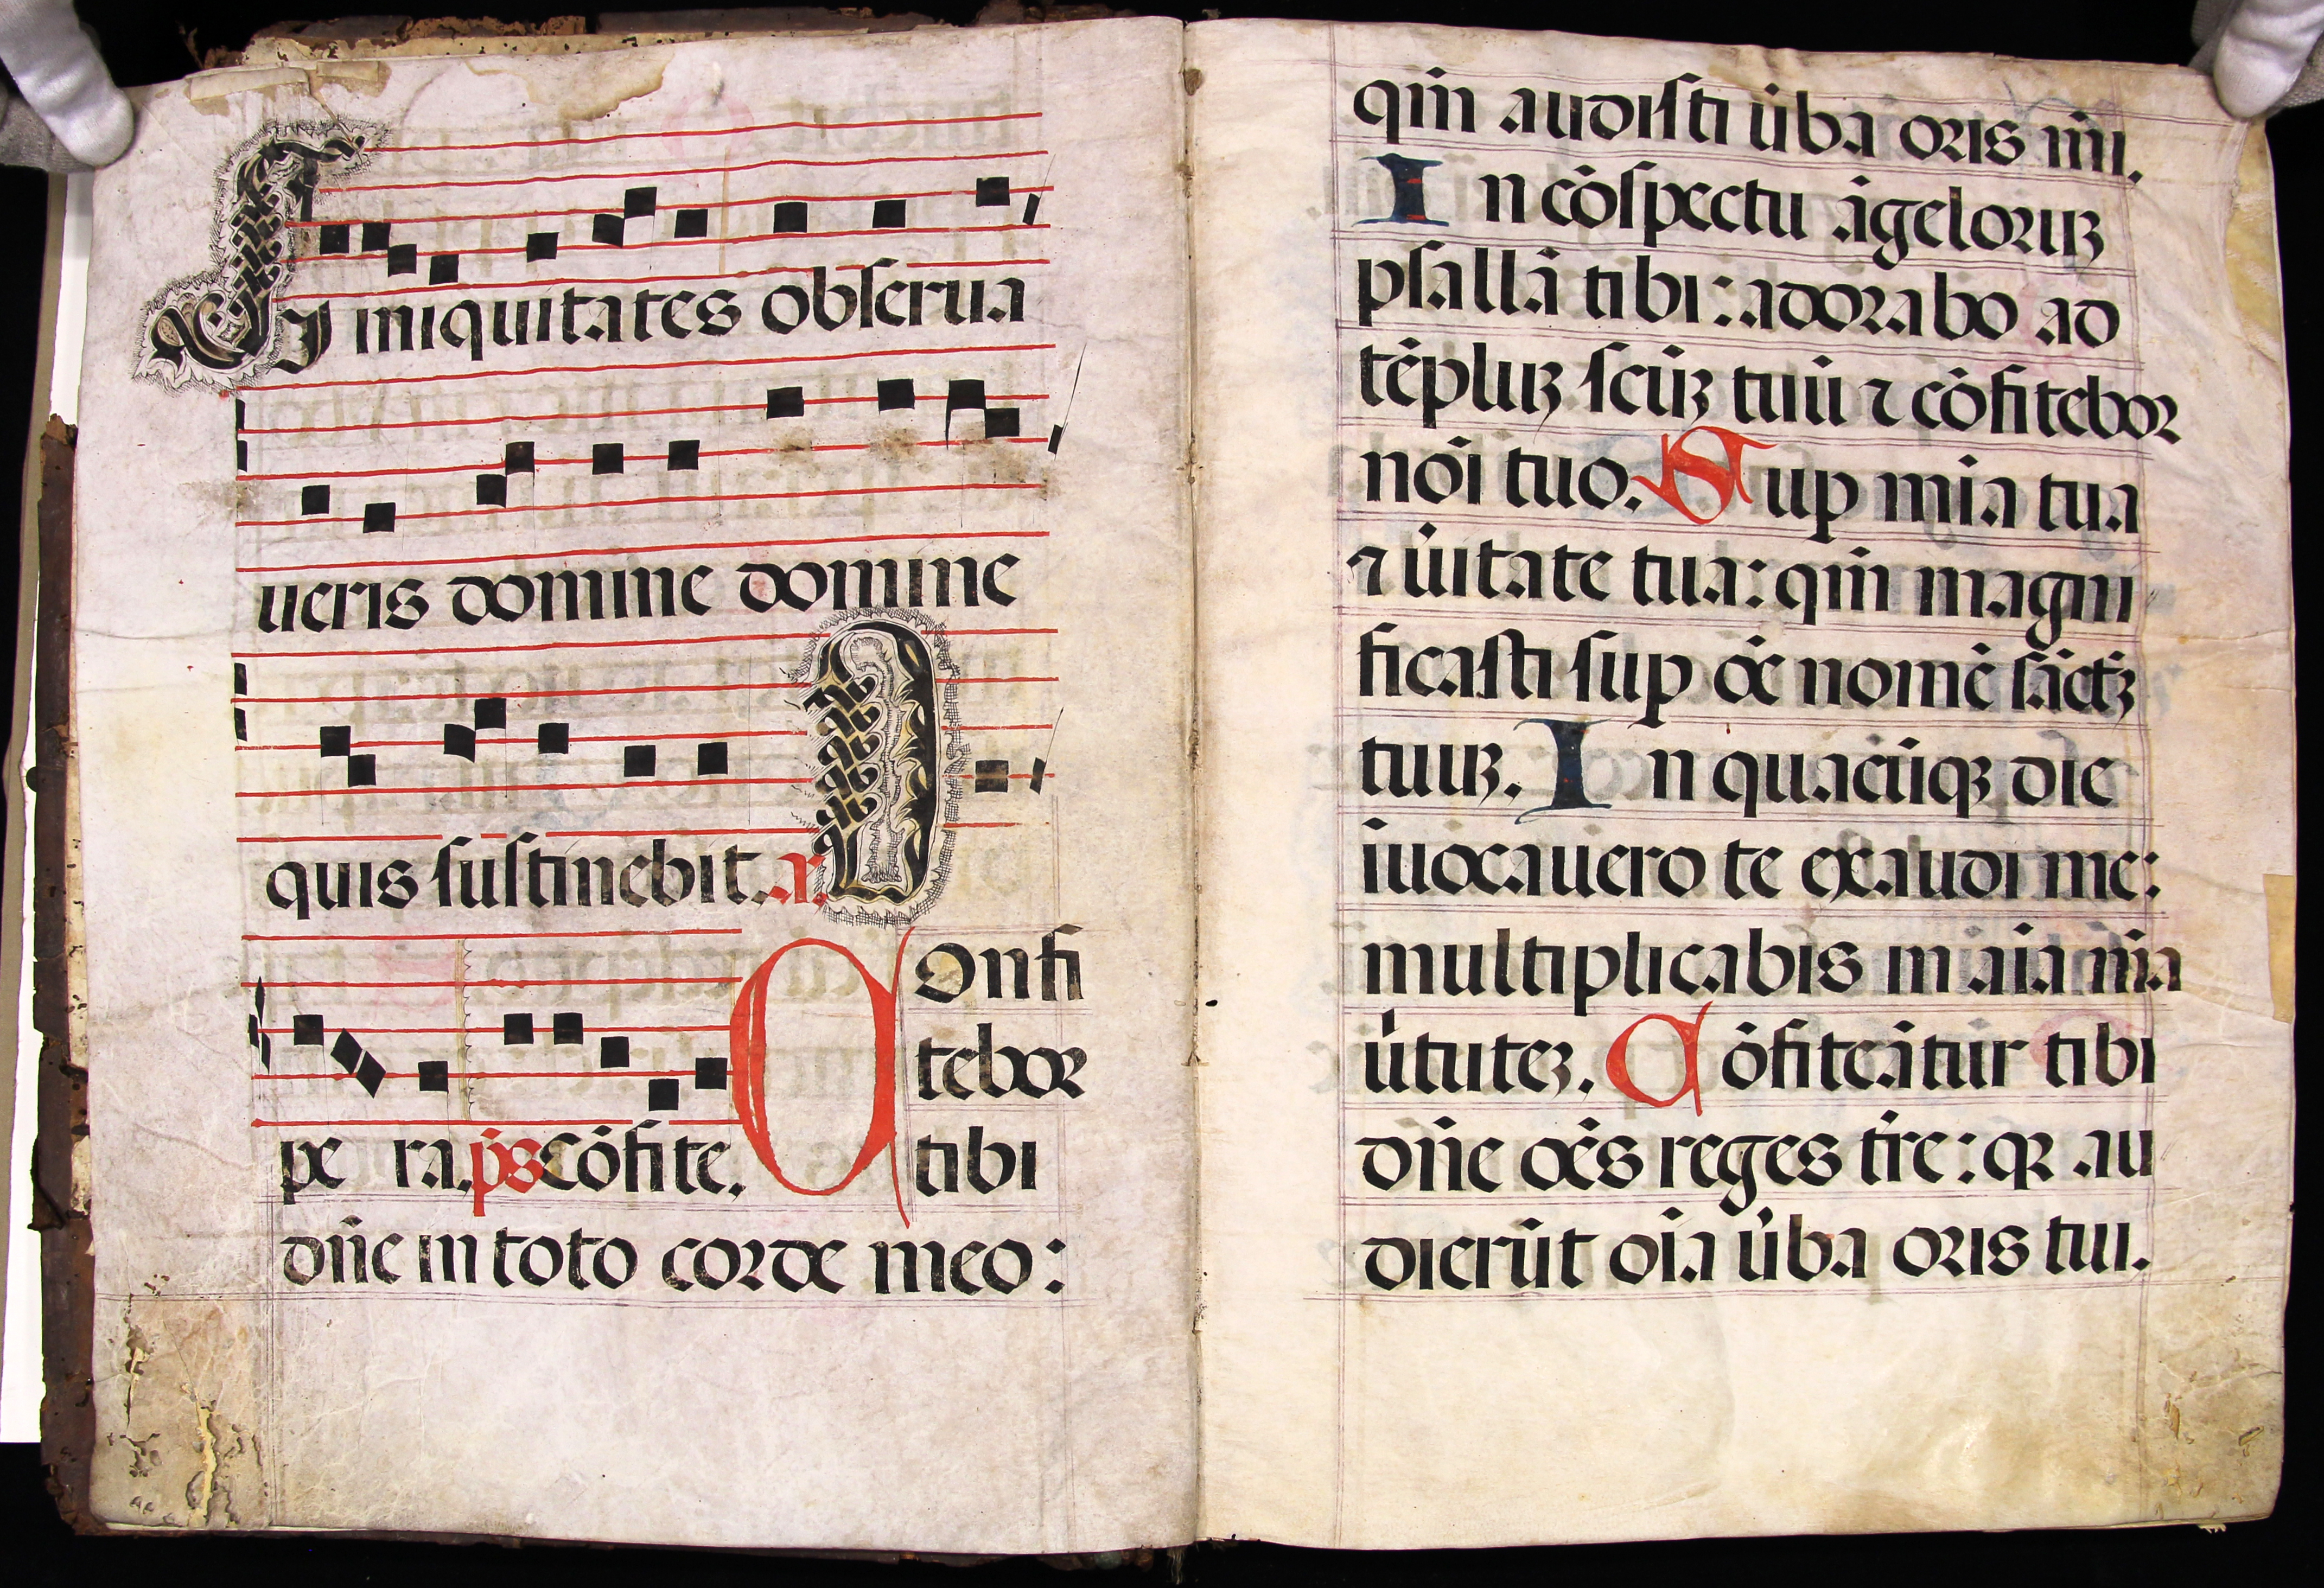 Si iniquitates obserua
ueris domine domine
quis sustinebit. a. O
pe ra. ps Cōfite. Confi
tebor
tibi
dn̄e in toto corde meo:
qm̄ audisti u̇ba oris mi̅.
In cōspectu āgeloruꝫ
psallā tibi: adorabo ad
tēpluꝫ scūꝫ tuū ⁊ cōfitebor
noi̅ tuo. Sup mi̅a tua
⁊ u̇itate tua: qm̄ magni
ficasti sup oē nomē sāctꝫ
tuuꝫ. In quacūqꝫ die
iuocauero te exaudi me:
multiplicabis in ai̅a mi̅a
u̇tuteꝫ. Cōfiteātur tibi
dn̄e oēs reges tr̄e: qꝛ au
dierūt oi̅a u̇ba oris tui.